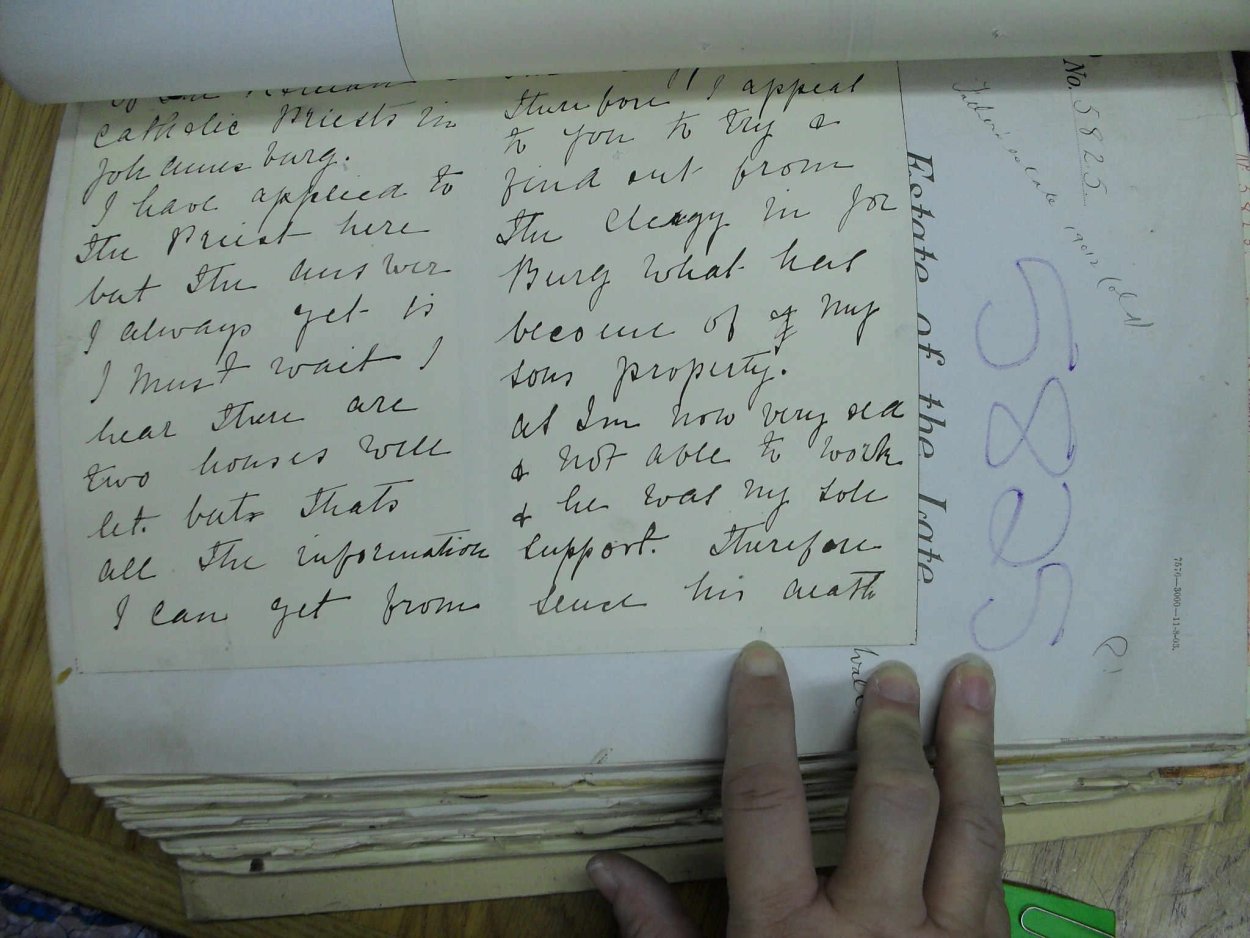 of the Roman
Catholic Priests in
Johannesburg.
I have applied to
the Priest here
but the answer
I always get is
I must wait I
hear there are
two houses well
let. but thats
all the information
I can get from
Therefore I appeal
to you to try &
find out from
the Clergy in Jo
Burg what has
become of of my
sons property.
as Im now very old
& not able to work
& he was my sole
support. Therefore
sence his death
No. 5825
Estate of the Late
5825
7576—3000—11-8-03.